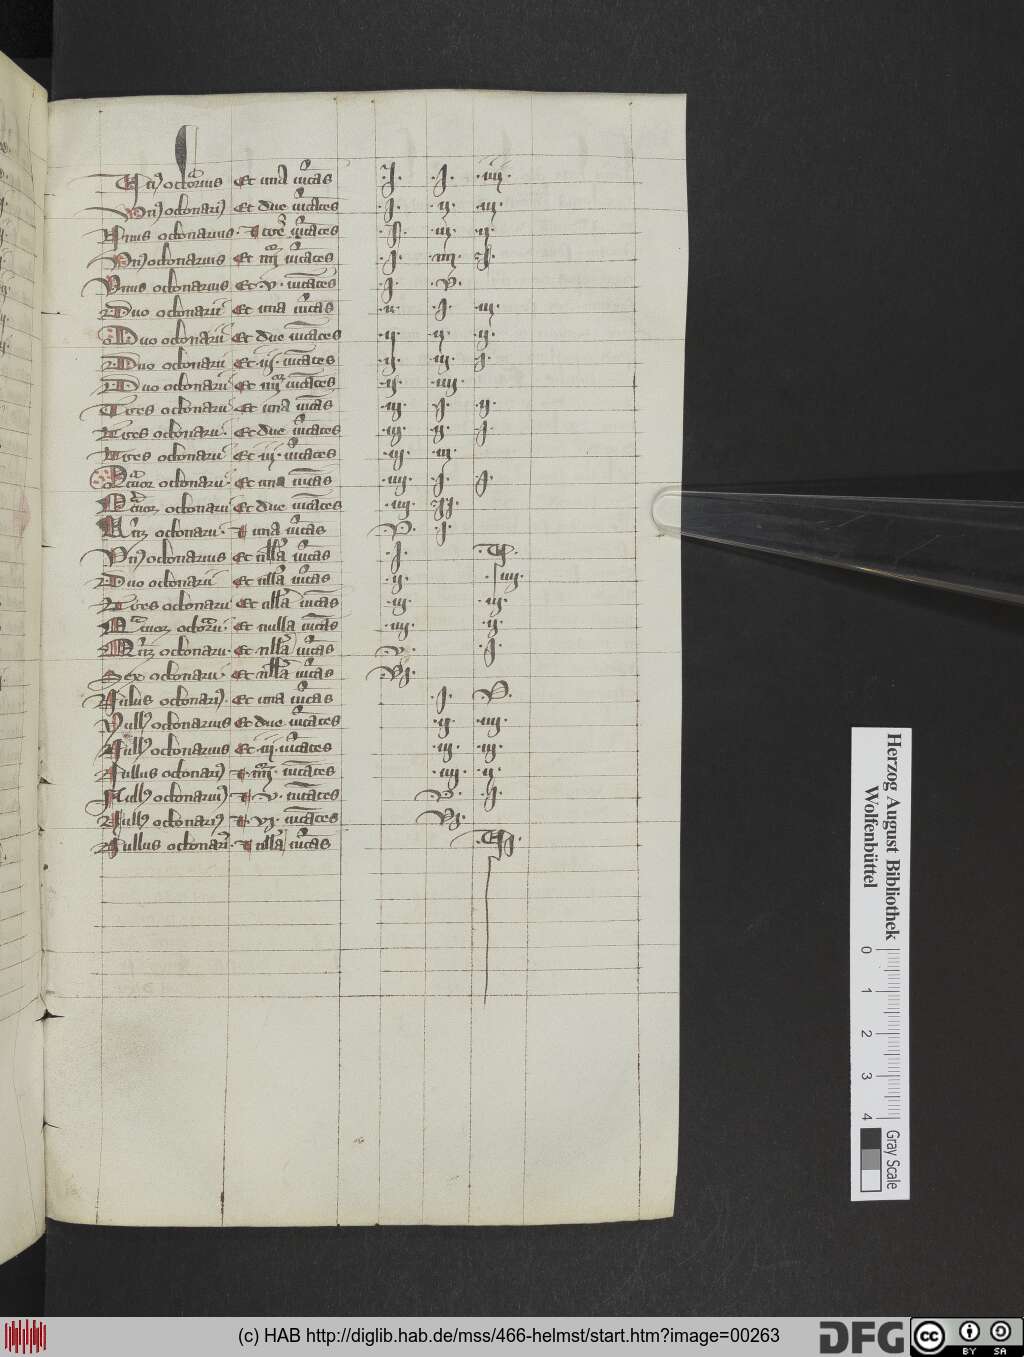 Vn9 octonarius Et una uicas .I. .I. .iiij.
Vn9 octonari9 Et due uicates .I. .ij. .iij.
Vnus octonarius. Et tres uicates .I. .iij. .ij.
Vn9 octonarius Et iiij uicates .I. .iiij. .I.
Vnus octonarius Et .v. uicates .I. .v.
Duo octonarii Et una uicas .ij. .I. .iij.
Duo octonarii Et due uicates .ij. .ij. .ij.
Duo octonarii Et .iij. uicates .ij. .iij. .I.
Duo octonarii Et iiij uicates .ij. .iiij.
Tres octonarii Et una uicas .iij. .I. .ij.
Tres octonarii. Et due uicates .iij. .ij. .I.
Tres octonarii Et .iij. uicates .iij. .iij.
Qtuor octonarii. Et una uicas .iiij. .I. .I.
Qtuor octonarii Et due uicates .iiij. .II.
octonarii. Et una uicas .V. .I.
Vn9 octonarius Et nlla uicas .I.
Duo octonarii Et nlla uicas .ij. .iiij.
Tres octonarii Et nlla uicas .iij. .iij.
Qtuor octonarii. Et nulla uicas .iiij. .ij.
octonarii. Et nlla uicas .V. .I.
Sex octonarii. Et nlla uicas .VI.
Nulus octonari9. Et una uicas .I. .V.
Null9 octonarius Et due uicates .ij. .iiij.
Null9 octonarius Et .iij. uicates .iij. .iij.
Nullus octonari9 Et iiij uicates .iiij. .ij.
Null9 octonari9 Et .v. uicates .v. .I.
Null9 octonari9 Et .vj. uicates .Vj.
Nullus octonari9. Et nlla uicas
Herzog August Bibliothek
Wolfenbüttel
0 1 2 3 4
Gray Scale
(c) HAB http://diglib.hab.de/mss/466-helmst/start.htm?image=00263
DFG
CC BY SA